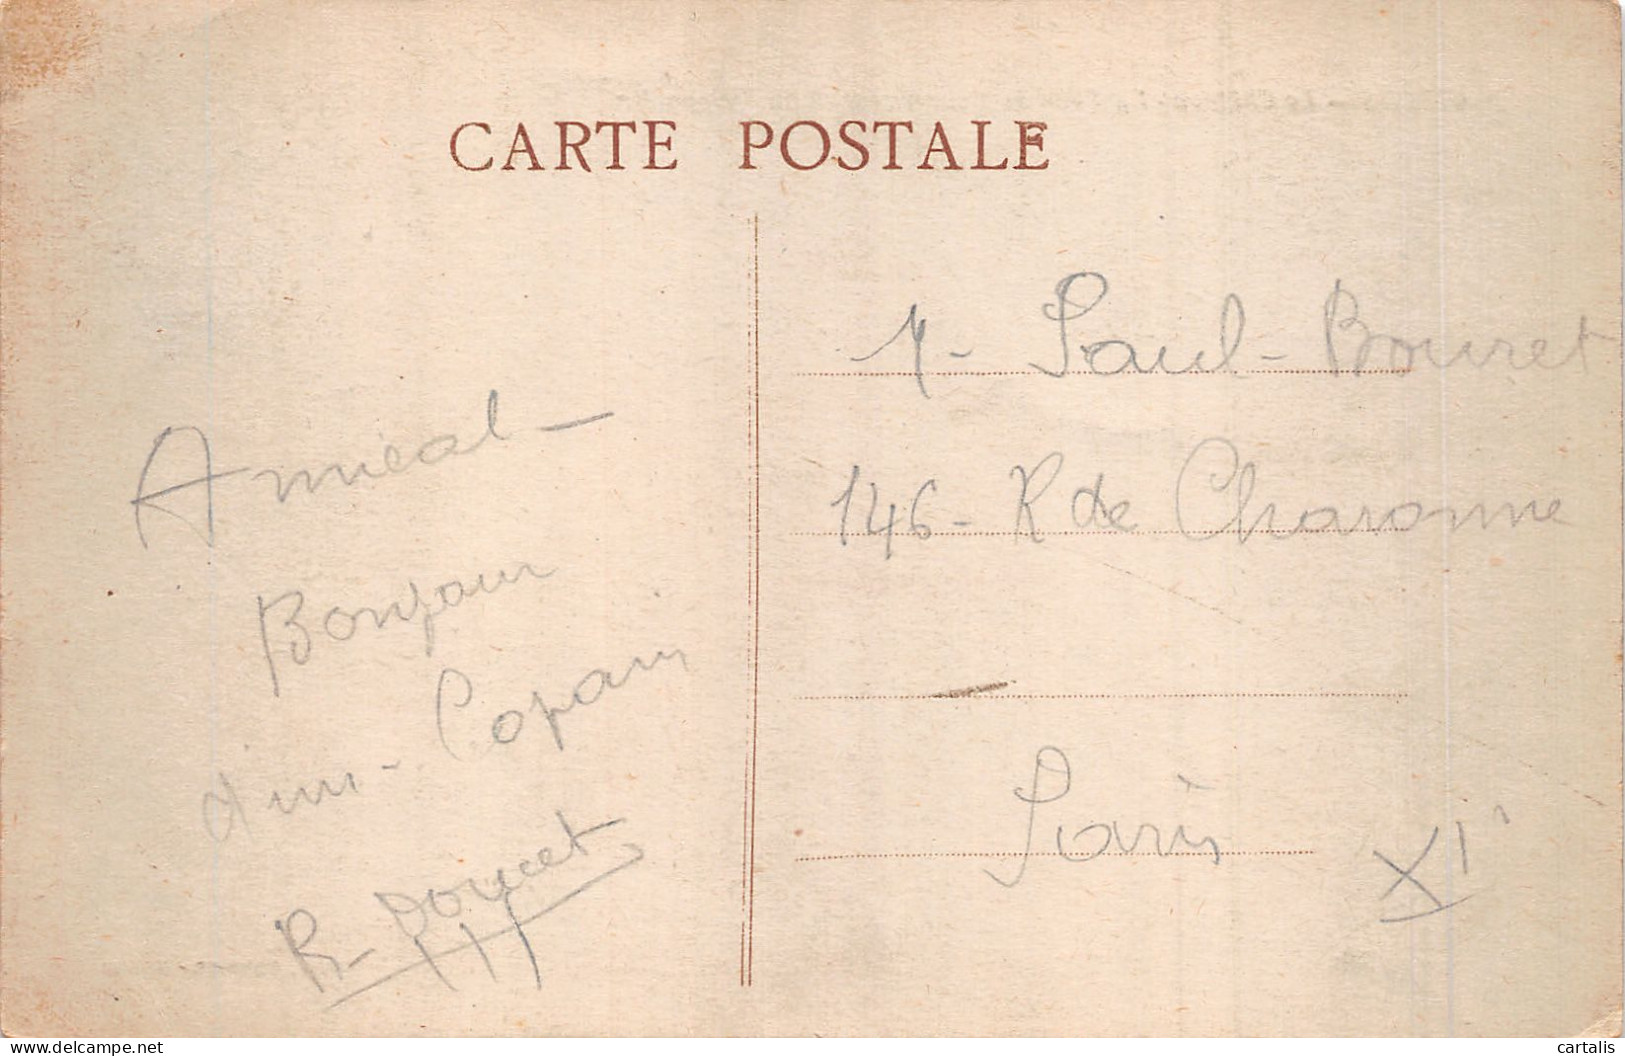 CARTE POSTALE
Amical -
Bonjour
d'un - Copain
R - Doucet
M - Paul - Bouret
146 - R de Charonne
Paris
XI'
delcampe.net
cartalis